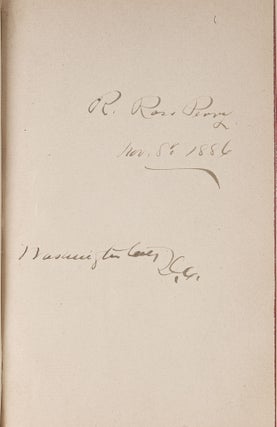 R. Ross Perry
Nov. 8th 1886
Washington City
D.C.